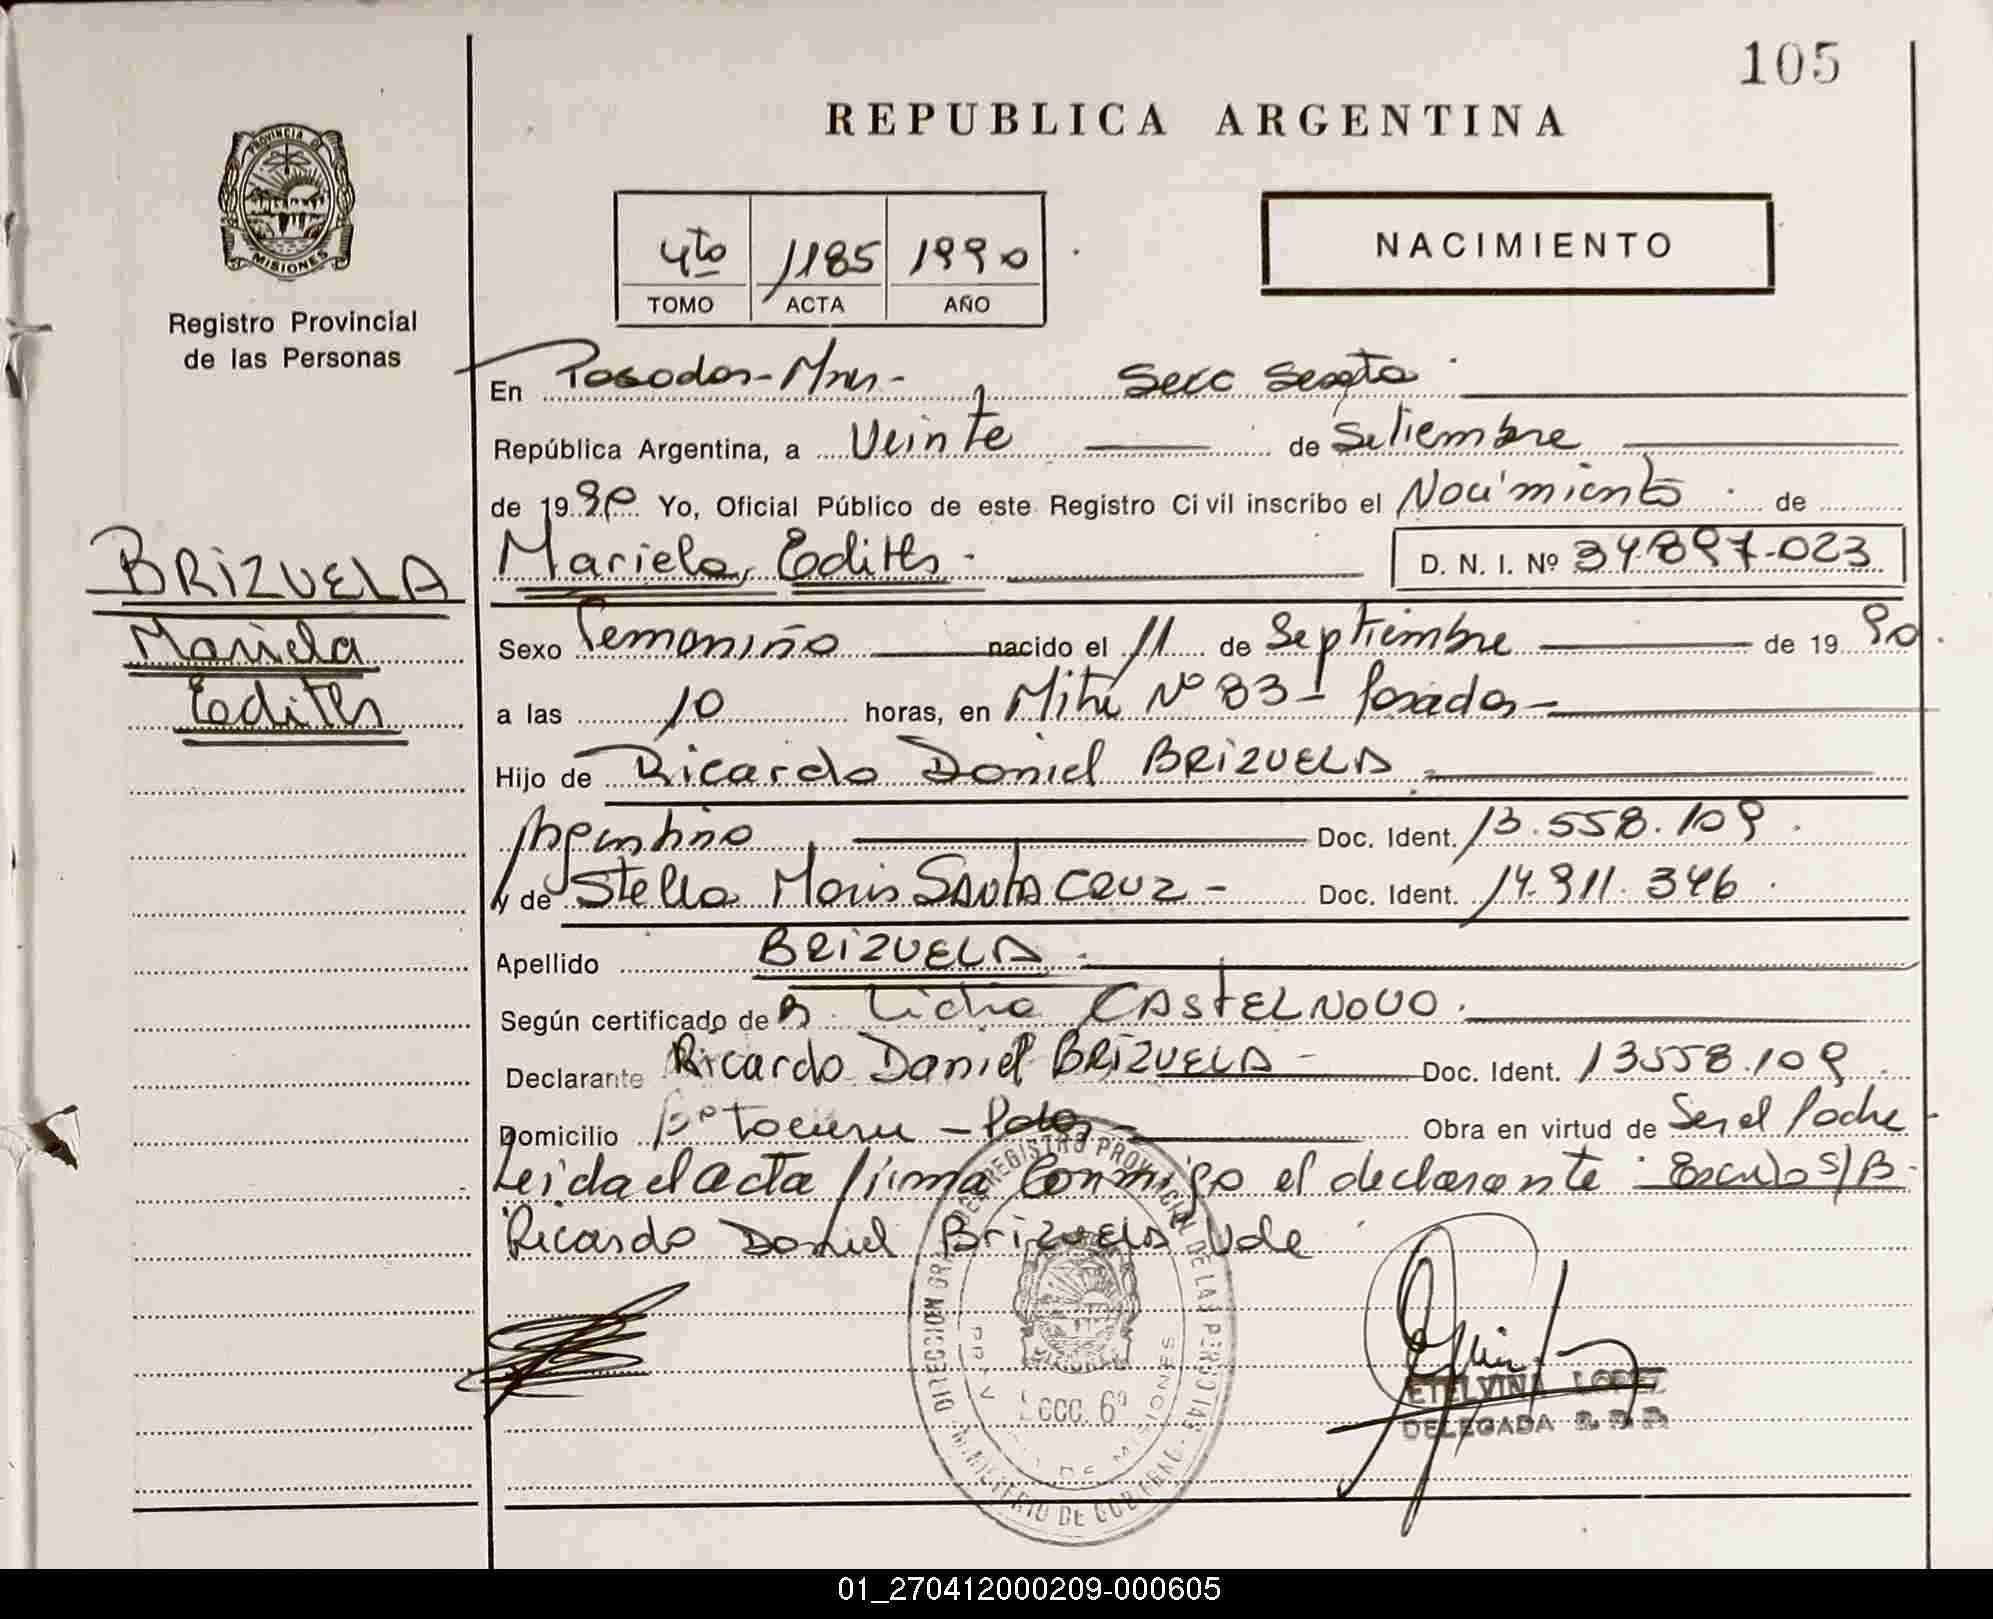 105
REPUBLICA ARGENTINA
PROVINCIA DE
MISIONES
Registro Provincial
de las Personas
4to 1185 1990
TOMO ACTA AÑO
NACIMIENTO
En Posadas - Mnes - Secc Sexta
República Argentina, a Veinte de Setiembre
de 1990 Yo, Oficial Público de este Registro Civil inscribo el Nacimiento de
Mariela, Edith - D. N. I. Nº 34.897-023
BRIZUELA
Mariela
Edith
Sexo Femenino nacido el 11 de Septiembre de 1990.
a las 10 horas, en Mitre Nº 83 - Posadas -
Hijo de Ricardo Daniel BRIZUELA
Argentino Doc. Ident. 13.558.109.
y de Stella Maris SANTA CRUZ - Doc. Ident. 14.911.346.
Apellido BRIZUELA.
Según certificado de Lidia CASTELNOVO.
Declarante Ricardo Daniel BRIZUELA - Doc. Ident. 13558.109.
Domicilio Bº Tacuru - Pdas - Obra en virtud de Ser el Padre -
Leida el acta firma conmigo el declarante S/B -
Ricardo Daniel Brizuela Vale
DIRECCION GRAL. DEL REGISTRO PROVINCIAL DE LAS PERSONAS
Secc. 6º
PROV. DE MISIONES
MINISTERIO DE GOBIERNO
ETELVINA LOPEZ
DELEGADA R. P. P.
01_270412000209-000605